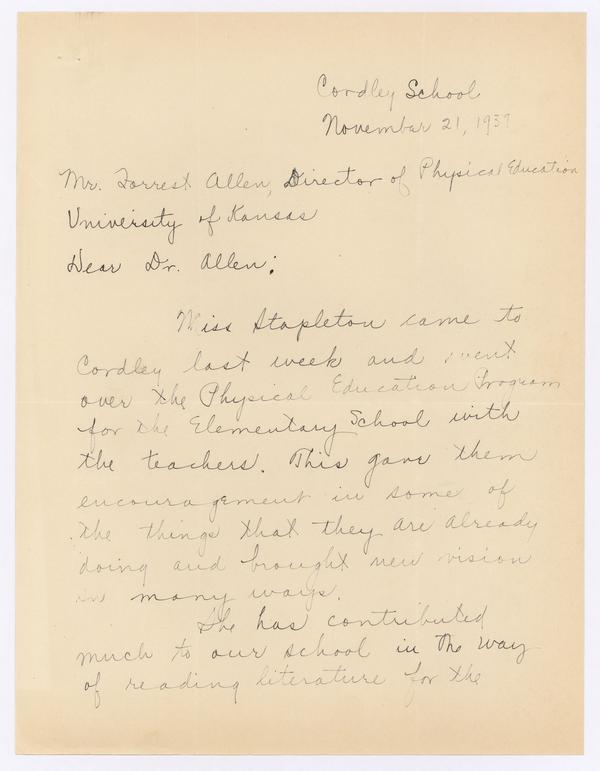 Cordley School
November 21, 1939
Mr. Forrest Allen, Director of Physical Education
University of Kansas
Dear Dr. Allen:
Miss Stapleton came to
Cordley last week and went
over the Physical Education Program
for the Elementary School with
the teachers. This gave them
encouragement in some of
the things that they are already
doing and brought new vision
in many ways.
She has contributed
much to our school in the way
of reading literature for the